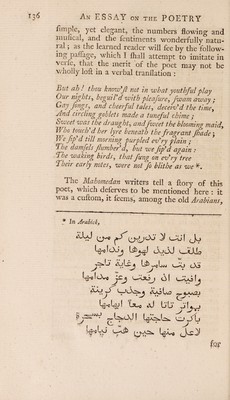 136 An ESSAY on the POETRY
ſimple, yet elegant, the numbers flowing and
muſical, and the ſentiments wonderfully natu-
ral; as the learned reader will ſee by the follow-
ing paſſage, which I ſhall attempt to imitate in
verſe, that the merit of the poet may not be
wholly loſt in a verbal tranſlation:
But ah! thou know'ſt not in what youthful play
Our nights, beguil'd with pleaſure, ſwam away;
Gay ſongs, and cheerful tales, deceiv'd the time,
And circling goblets made a tuneful chime;
Sweet was the draught, and ſweet the blooming maid,
Who touch'd her lyre beneath the fragrant ſhade;
We ſip'd till morning purpled ev'ry plain;
The damſels ſlumber'd, but we ſip'd again:
The waking birds, that ſung on ev'ry tree
Their early notes, were not ſo blithe as we *.
The Mahomedan writers tell a ſtory of this
poet, which deſerves to be mentioned here: it
was a cuſtom, it ſeems, among the old Arabians,
* In Arabick,
بل انت لا تدرين كم من ليلة
طلق لذيذ لهوها وندامها
قد بت سامرها وغاية تاجر
وافيت اذ رفعت وعز مدامها
بصبوح صافية وجذب كرينة
بموتر تاتا له ابهامها
باكرت حاجتها الدجاج بسحرة
لاعل منها حين هب نيامها
for